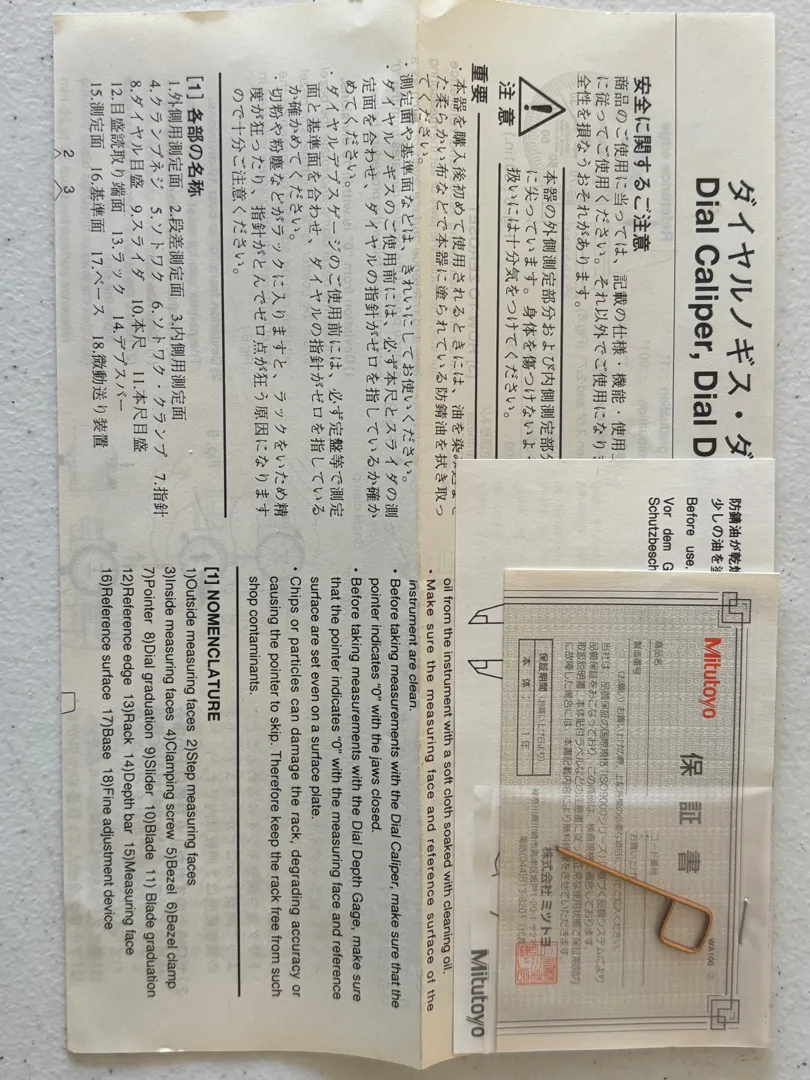 ダイヤルノギス・ダ
Dial Caliper, Dial D
安全に関するご注意
商品のご使用に当っては、記載の仕様・機能・使用
に従ってご使用ください。それ以外でご使用になりま
全性を損なうおそれがあります。
注意
本器の外側測定部分および内側測定部分
に尖っています。身体を傷つけないよ
扱いには十分気をつけてください。
重要
・本器を購入後初めて使用されるときには、油を染み
た柔らかい布などで本器に塗られている防錆油を拭き取っ
てください。
・測定面や基準面などは、きれいにしてお使いください。
・ダイヤルノギスのご使用前には、必ず本尺とスライダの測
定面を合わせ、ダイヤルの指針がゼロを指しているか確か
めてください。
・ダイヤルデプスゲージのご使用前には、必ず定盤等で測定
面と基準面を合わせ、ダイヤルの指針がゼロを指している
か確かめてください。
・切粉や粉塵などがラックに入りますと、ラックをいため精
度が狂ったり、指針がとんでゼロ点が狂う原因になります
ので十分ご注意ください。
[1] 各部の名称
1.外側用測定面 2.段差測定面 3.内側用測定面
4.クランプネジ 5.ソトワク 6.ソトワク・クランプ 7.指針
8.ダイヤル目盛 9.スライダ 10.本尺 11.本尺目盛
12.目盛読取り端面 13.ラック 14.デプスバー
15.測定面 16.基準面 17.ベース 18.微動送り装置
2 3
oil from the instrument with a soft cloth soaked with cleaning oil.
• Make sure the measuring face and reference surface of the
instrument are clean.
• Before taking measurements with the Dial Caliper, make sure that the
pointer indicates "0" with the jaws closed.
• Before taking measurements with the Dial Depth Gage, make sure
that the pointer indicates "0" with the measuring face and reference
surface are set even on a surface plate.
• Chips or particles can damage the rack, degrading accuracy or
causing the pointer to skip. Therefore keep the rack free from such
shop contaminants.
[1] NOMENCLATURE
1)Outside measuring faces 2)Step measuring faces
3)Inside measuring faces 4)Clamping screw 5)Bezel 6)Bezel clamp
7)Pointer 8)Dial graduation 9)Slider 10)Blade 11) Blade graduation
12)Reference edge 13)Rack 14)Depth bar 15)Measuring face
16)Reference surface 17)Base 18)Fine adjustment device
防錆油が乾燥
少しの油を塗
Before use,
Vor dem G
Schutzbesch
Mitutoyo
保証書
商品名
コード番号
製造番号
保証期間
本体 1年
株式会社 ミツトヨ
WA100
Mitutoyo